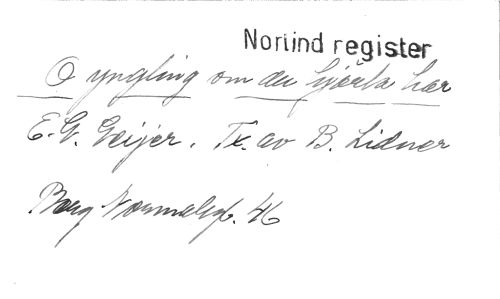 Norlind register
O yngling om du hjärta har
E. G. Geijer. Tx. av B. Lidner
Berg Normalsgb. 46